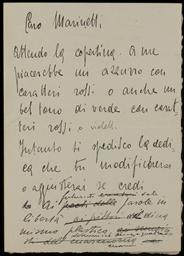 Caro Marinetti
attendo la copertina. a me
piacerebbe un azzurro con
caratteri rossi o anche un
bel tono di verde con carat
teri rossi o violetti.
Intanto ti spedisco la dedi
ca che tu modificherai
o aggiusterai se credi
ai parole in
libertà dina
mismo plastico